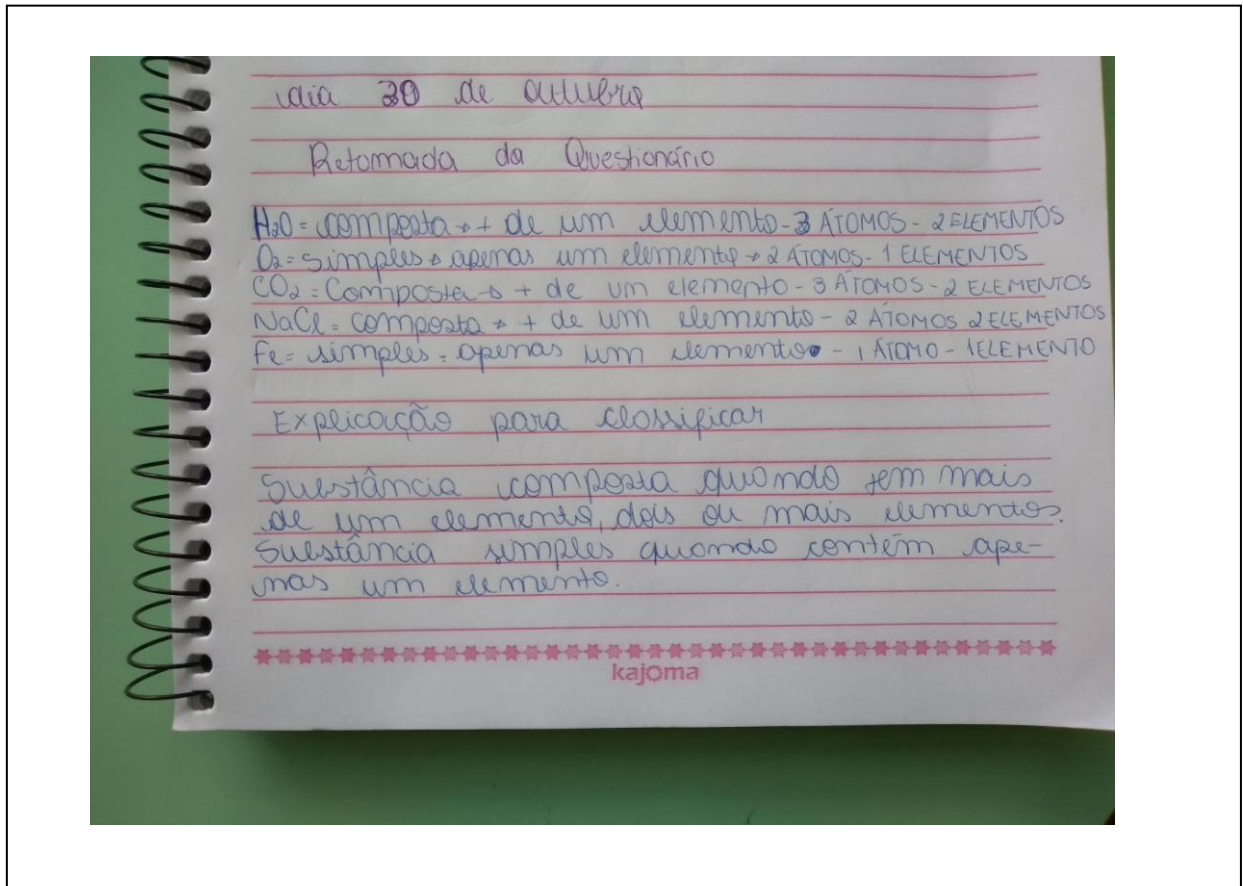 dia 30 de outubro
Retomada da Questionário
H₂O = composta → + de um elemento - 3 ÁTOMOS - 2 ELEMENTOS
O₂ = simples → apenas um elemento → 2 ÁTOMOS - 1 ELEMENTOS
CO₂ = Composta → + de um elemento - 3 ÁTOMOS - 2 ELEMENTOS
NaCl = composta → + de um elemento - 2 ÁTOMOS 2 ELEMENTOS
Fe = simples = apenas um elemento - 1 ÁTOMO - 1 ELEMENTO
Explicação para classificar
Substância composta quando tem mais
de um elemento, dois ou mais elementos.
Substância simples quando contém ape-
nas um elemento.
kajoma